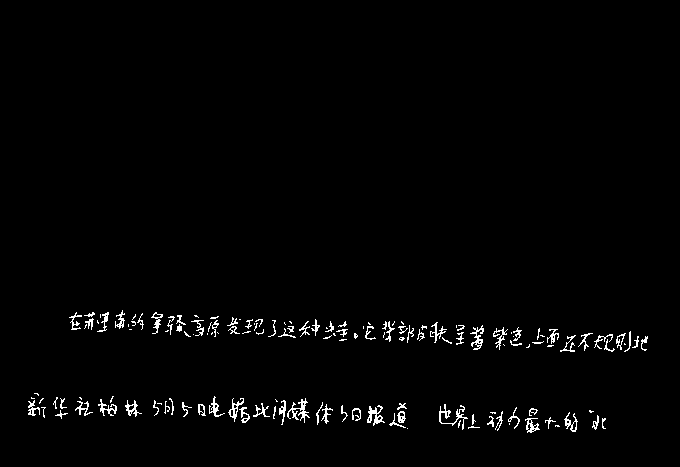 在苏里南的拿骚高原发现了这种蛙。它背部皮肤呈蓝紫色,上面还不规则地
新华社柏林5月5日电据此间媒体5日报道 世界上动力最大的“北